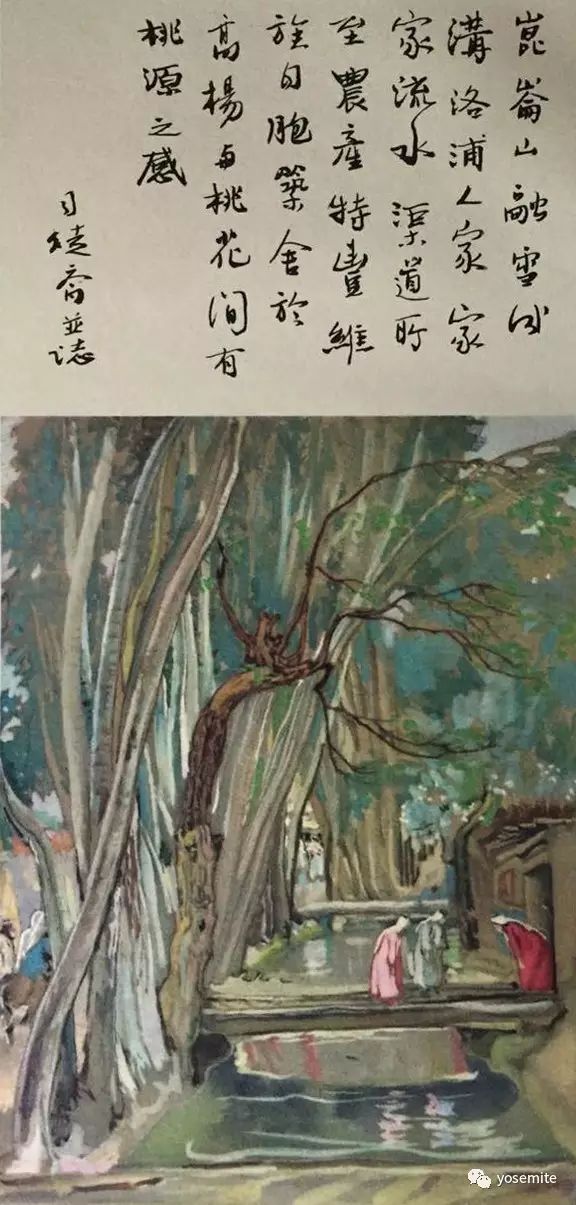 崑崙山融雪成
溝洛浦人家家
家流水渠道所
至農產特豐維
族同胞築舍於
高楊与桃花間有
桃源之感
司徒喬並誌
yosemite